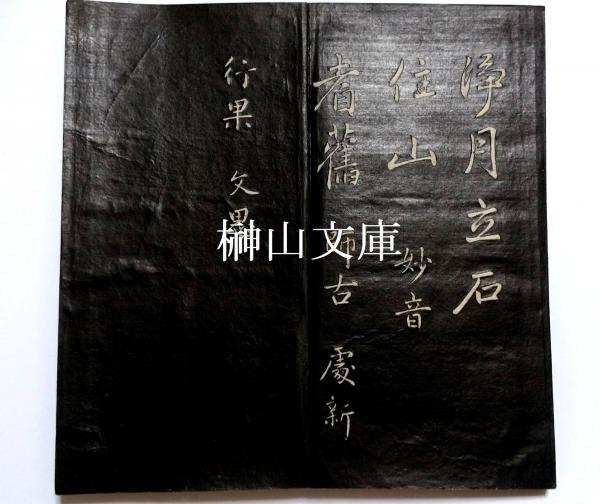 淨月立石
住山 妙音
耆舊 師古 處新
行果 文果
榊山文庫